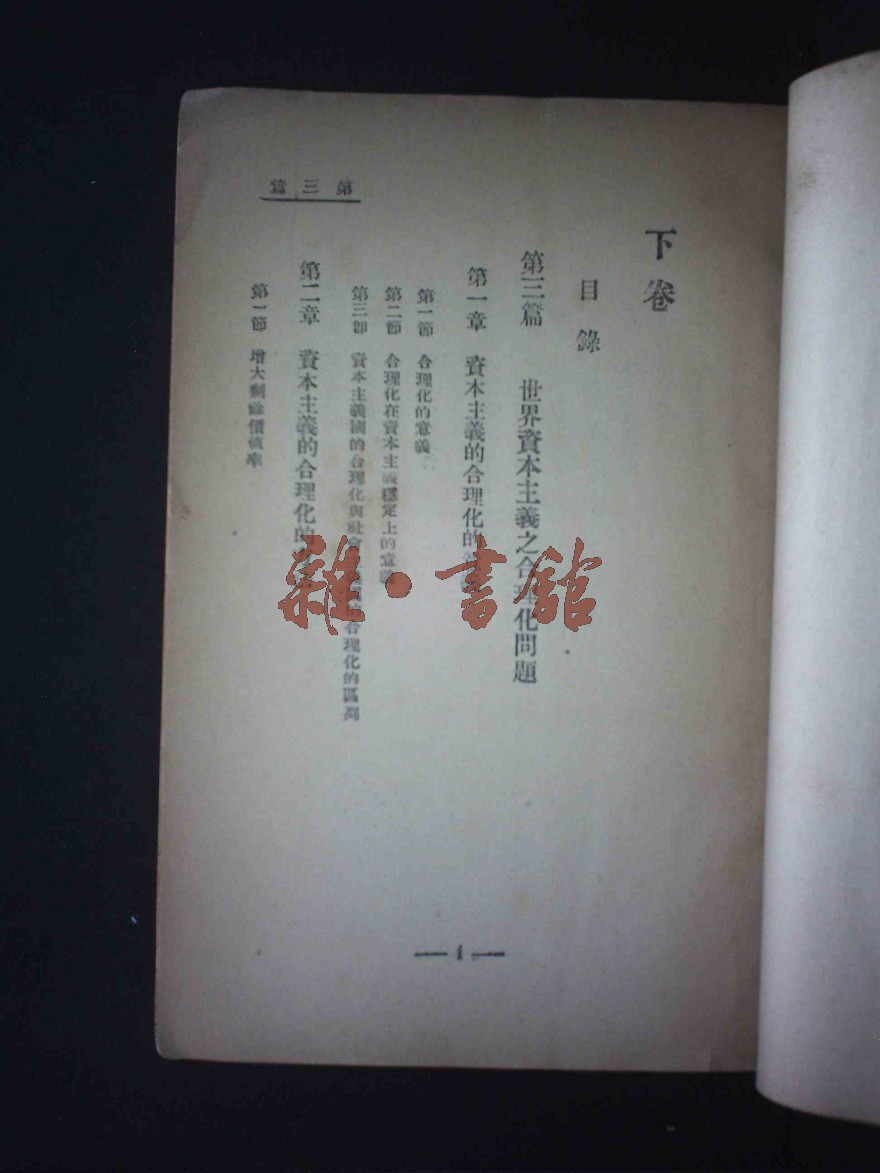 第三篇
下卷
目錄
第三篇 世界資本主義之合理化問題
第一章 資本主義的合理化的
第一節 合理化的意義
第二節 合理化在資本主義穩定上的意義
第三節 資本主義國的合理化與社會 合理化的區別
第二章 資本主義的合理化的
第一節 增大剩餘價值率
— 1 —
雜·書館